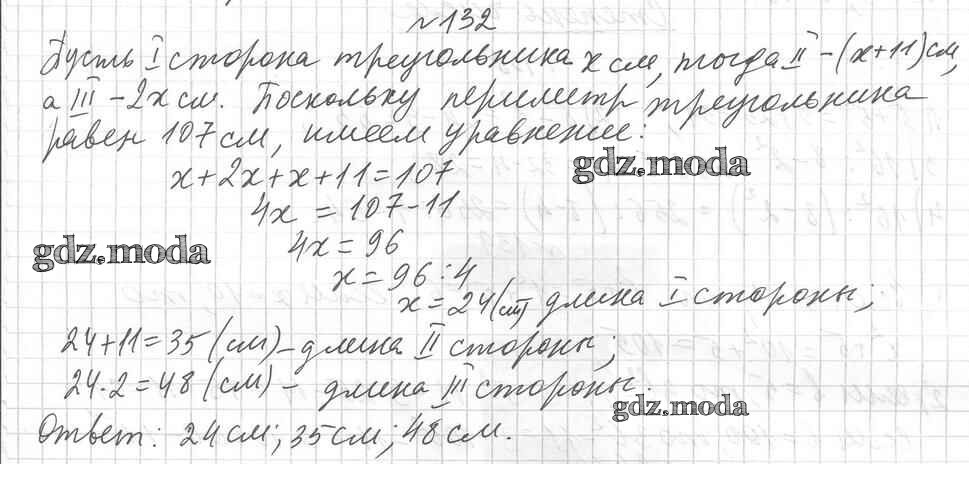 №132
Пусть I сторона треугольника x см, тогда II – (x+11) см,
а III – 2x см. Поскольку периметр треугольника
равен 107 см, имеем уравнение:
gdz.moda
x+2x+x+11=107
4x = 107-11
gdz.moda
4x = 96
x = 96 : 4
x = 24 (см) длина I стороны;
24+11=35 (см) – длина II стороны;
24·2=48 (см) – длина III стороны.
gdz.moda
Ответ: 24 см; 35 см; 48 см.